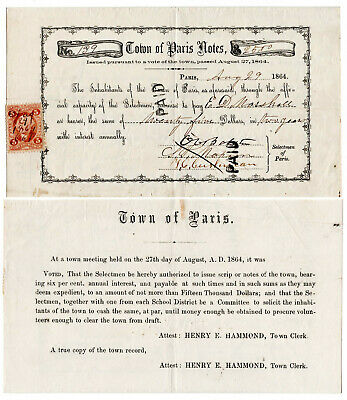 No. 139 Town of Paris Notes, $ 25.00
Issued pursuant to a vote of the town, passed August 27, 1864.
PARIS, Aug 29 1864.
The Inhabitants of the Town of Paris, as aforesaid, through the offi-
cial capacity of the Selectmen, promise to pay to D. Marshall
or bearer, the sum of Twenty five Dollars, in two years
with interest annually.
PAID
PAID
Selectmen
of
Paris.
Town of Paris.
At a town meeting held on the 27th day of August, A. D. 1864, it was
VOTED, That the Selectmen be hereby authorized to issue scrip or notes of the town, bear-
ing six per cent. annual interest, and payable at such times and in such sums as they may
deem expedient, to an amount of not more than Fifteen Thousand Dollars; and that the Se-
lectmen, together with one from each School District be a Committee to solicit the inhabi-
tants of the town to cash the same, at par, until money enough be obtained to procure volun-
teers enough to clear the town from draft.
Attest: HENRY E. HAMMOND, Town Clerk.
A true copy of the town record,
Attest: HENRY E. HAMMOND, Town Clerk.